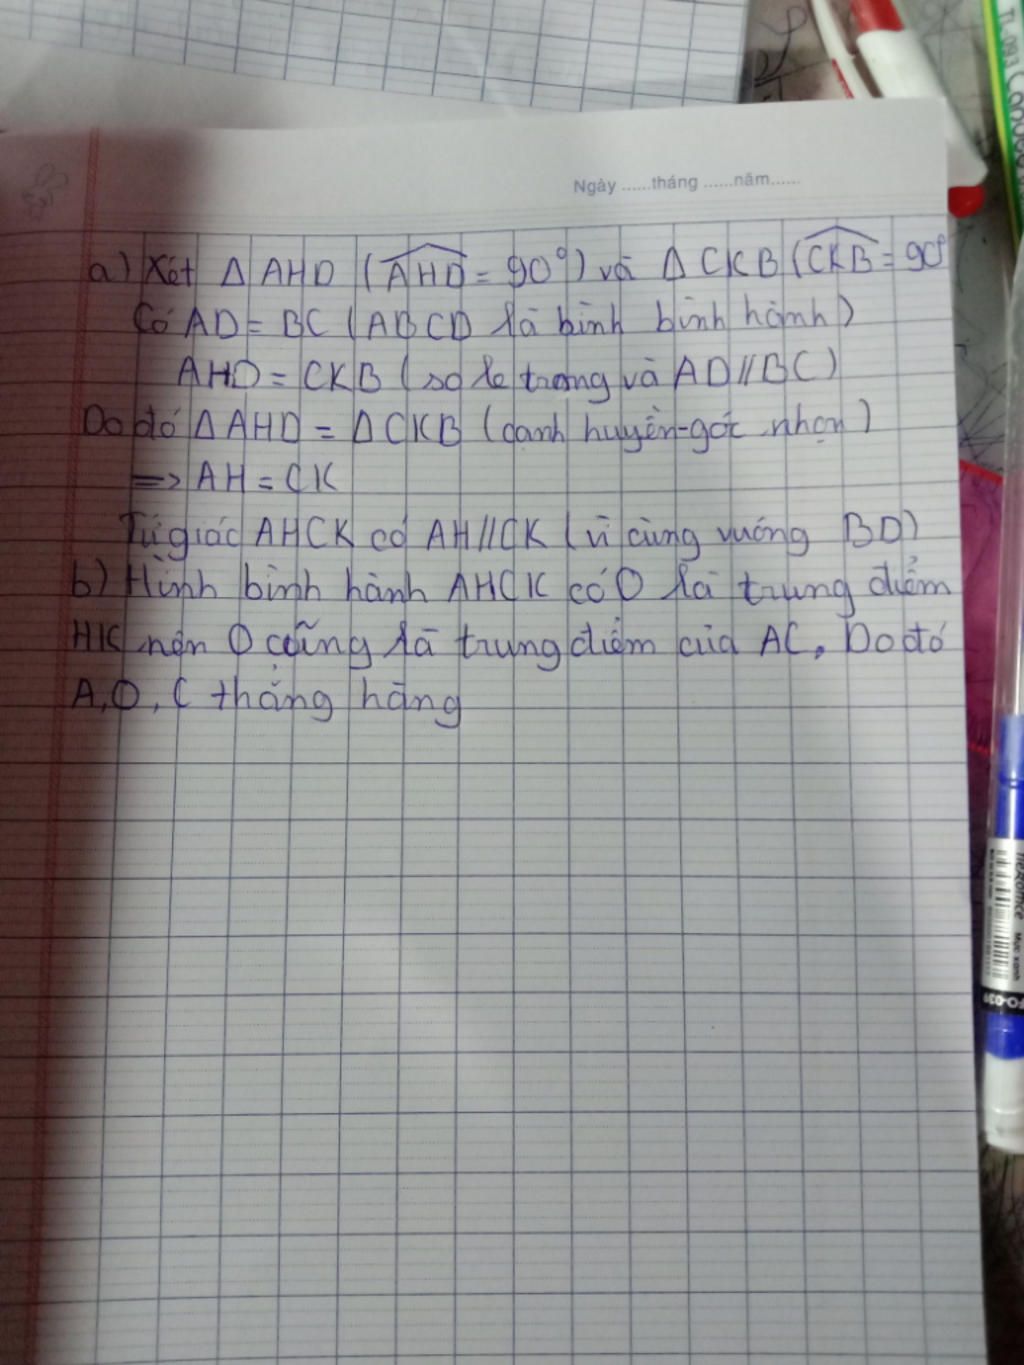 TL-093
Ngày ......tháng ......năm......
a) Xét Δ AHD (AHD = 90°) và Δ CKB (CKB = 90°
Có AD = BC (ABCD là bình bình hành)
AHD = CKB (so le trong và AD//BC)
Do đó Δ AHD = Δ CKB (cạnh huyền-góc nhọn)
=> AH = CK
Tứ giác AHCK có AH//CK (vì cùng vuông BD)
b) Hình bình hành AHCK có O là trung điểm
HK nên O cũng là trung điểm của AC. Do đó
A, O, C thẳng hàng
FO-039